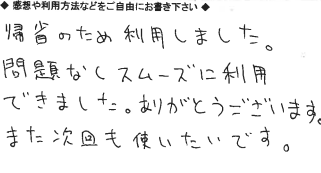 ◆ 感想や利用方法などをご自由にお書き下さい ◆
帰省のため利用しました。
問題なくスムーズに利用
できました。ありがとうございます。
また次回も使いたいです。